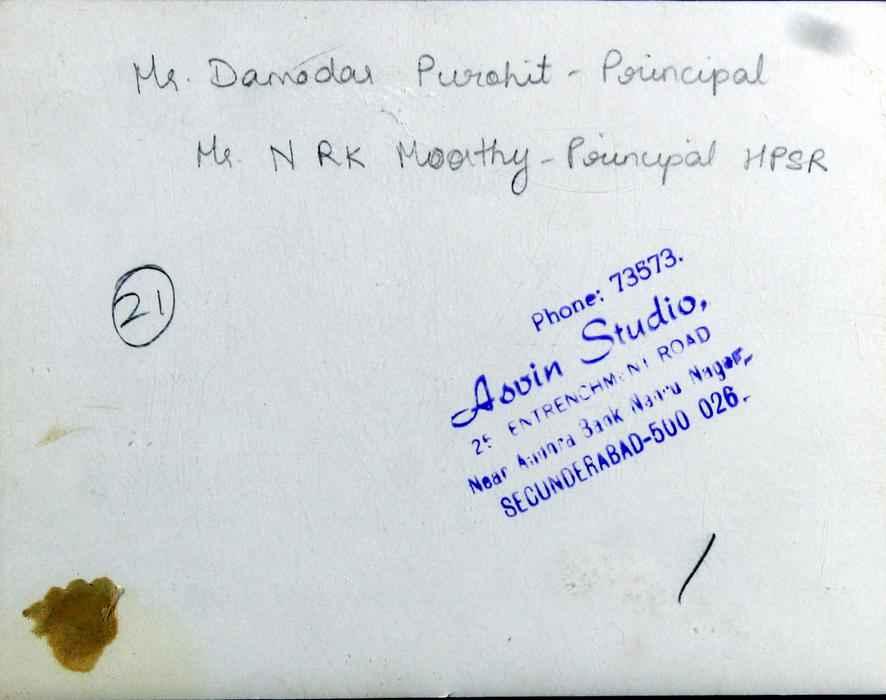 Mr. Damodar Purohit - Principal
Mr. N RK Moorthy - Principal HPSR
21
Phone: 73573.
Asvin Studio,
25 ENTRENCHMENT ROAD
Near Andhra Bank Nehru Nagar,
SECUNDERABAD-500 026.